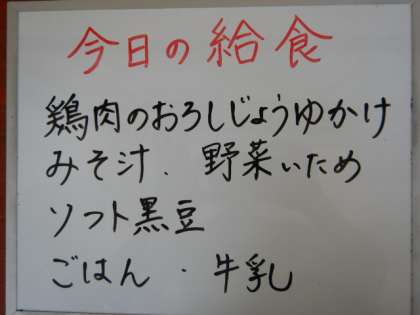 今日の給食
鶏肉のおろしじょうゆかけ
みそ汁．野菜いため
ソフト黒豆
ごはん・牛乳